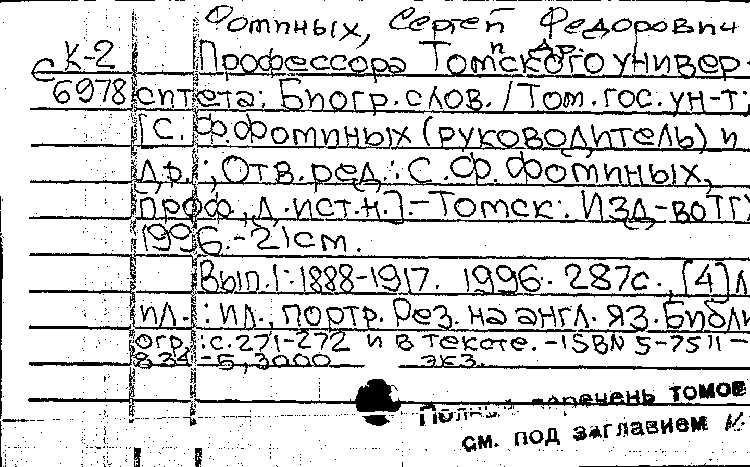 Фоминых, Сергей Федорович и др.
К-2
С 6978
Профессора Томского универ-
ситета: Биогр. слов. / Том. гос. ун-т;
[С. Ф. Фоминых (руководитель) и
др.; Отв. ред.: С. Ф. Фоминых,
проф., д. ист. н.]. - Томск: Изд-во ТГУ
1996. - 21 см.
Вып. 1: 1888-1917. 1996. 287с., [4] л
ил.: ил., портр. Рез. на англ. яз. Библи
огр.: с. 271-272 и в тексте. - ISBN 5-7511-
834-5, 3000 экз.
Полный перечень томов
см. под заглавием